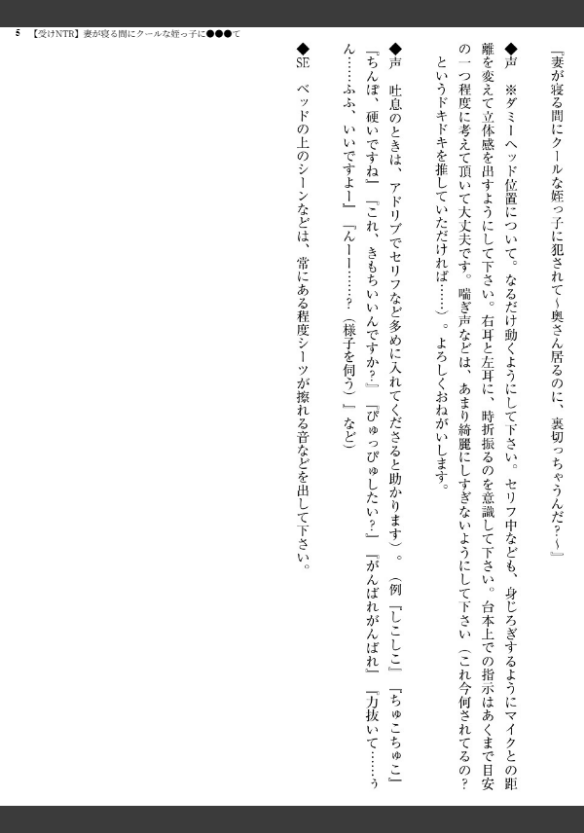 5 【受けNTR】妻が寝る間にクールな姪っ子に●●●て
『妻が寝る間にクールな姪っ子に犯されて～奥さん居るのに、裏切っちゃうんだ？～』
◆声　※ダミーヘッド位置について。なるだけ動くようにして下さい。セリフ中なども、身じろぎするようにマイクとの距
離を変えて立体感を出すようにして下さい。右耳と左耳に、時折振るのを意識して下さい。台本上での指示はあくまで目安
の一つ程度に考えて頂いて大丈夫です。喘ぎ声などは、あまり綺麗にしすぎないようにして下さい（これ今何されてるの？
というドキドキを推していただければ……）。よろしくおねがいします。
◆声　吐息のときは、アドリブでセリフなど多めに入れてくださると助かります）。（例『しこしこ』『ちゅこちゅこ』
『ちんぽ、硬いですね』『これ、きもちいいんですか？』『ぴゅっぴゅしたい？』『がんばれがんばれ』『力抜いて……ぅ
ん……ふふ、いいですよー』『んーー……？（様子を伺う）』など）
◆SE　ベッドの上のシーンなどは、常にある程度シーツが擦れる音などを出して下さい。